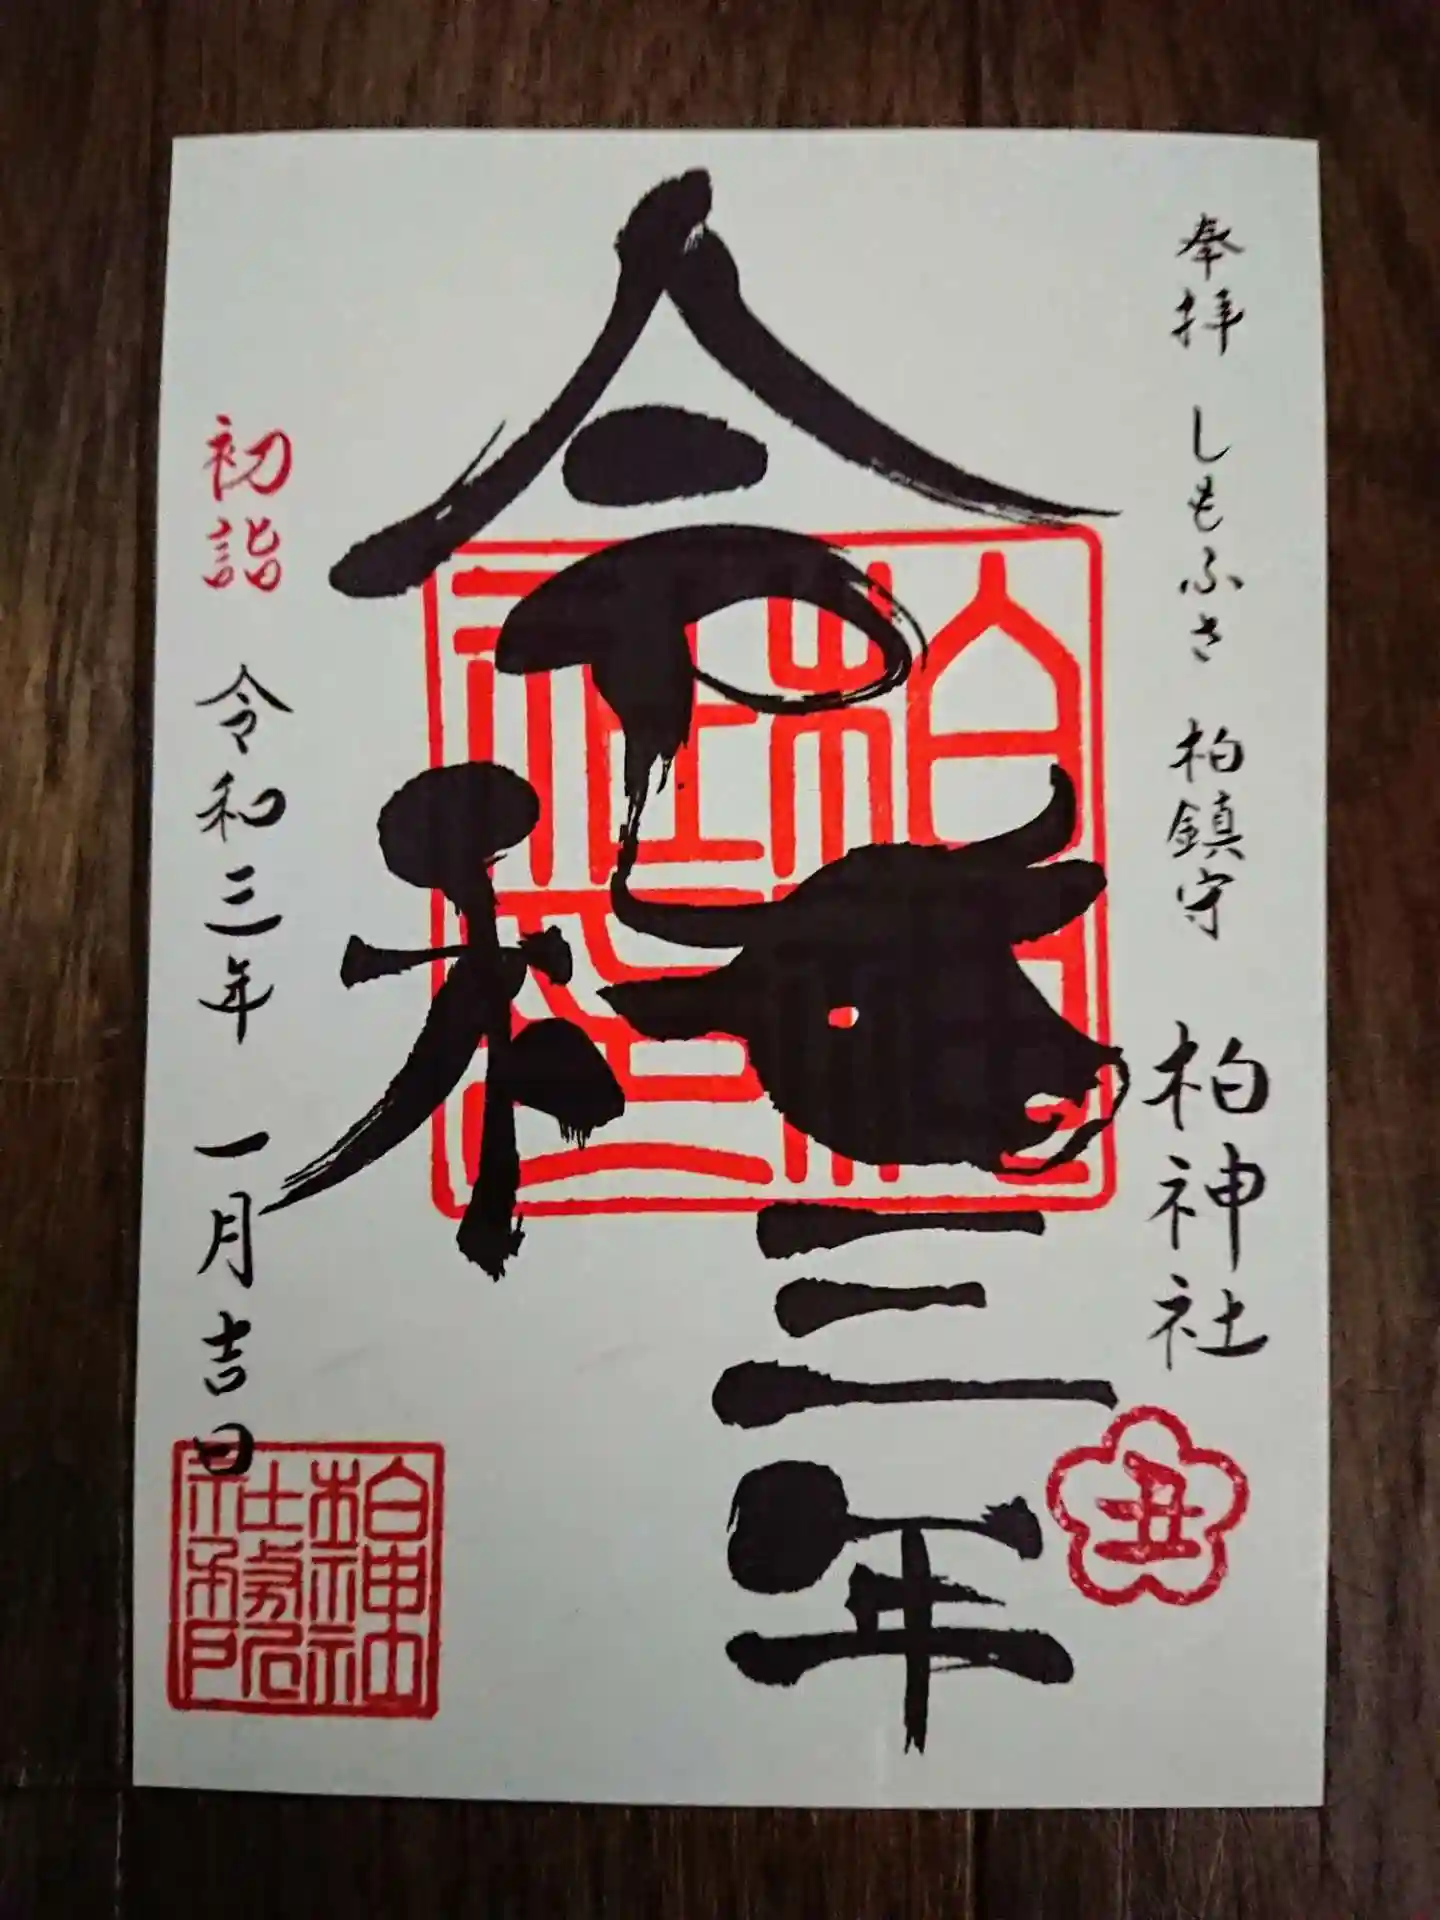 奉拝 しもふさ 柏鎮守 柏神社
丑
令和
三年
柏神社
初詣 令和三年 一月吉日
柏神社
社務所